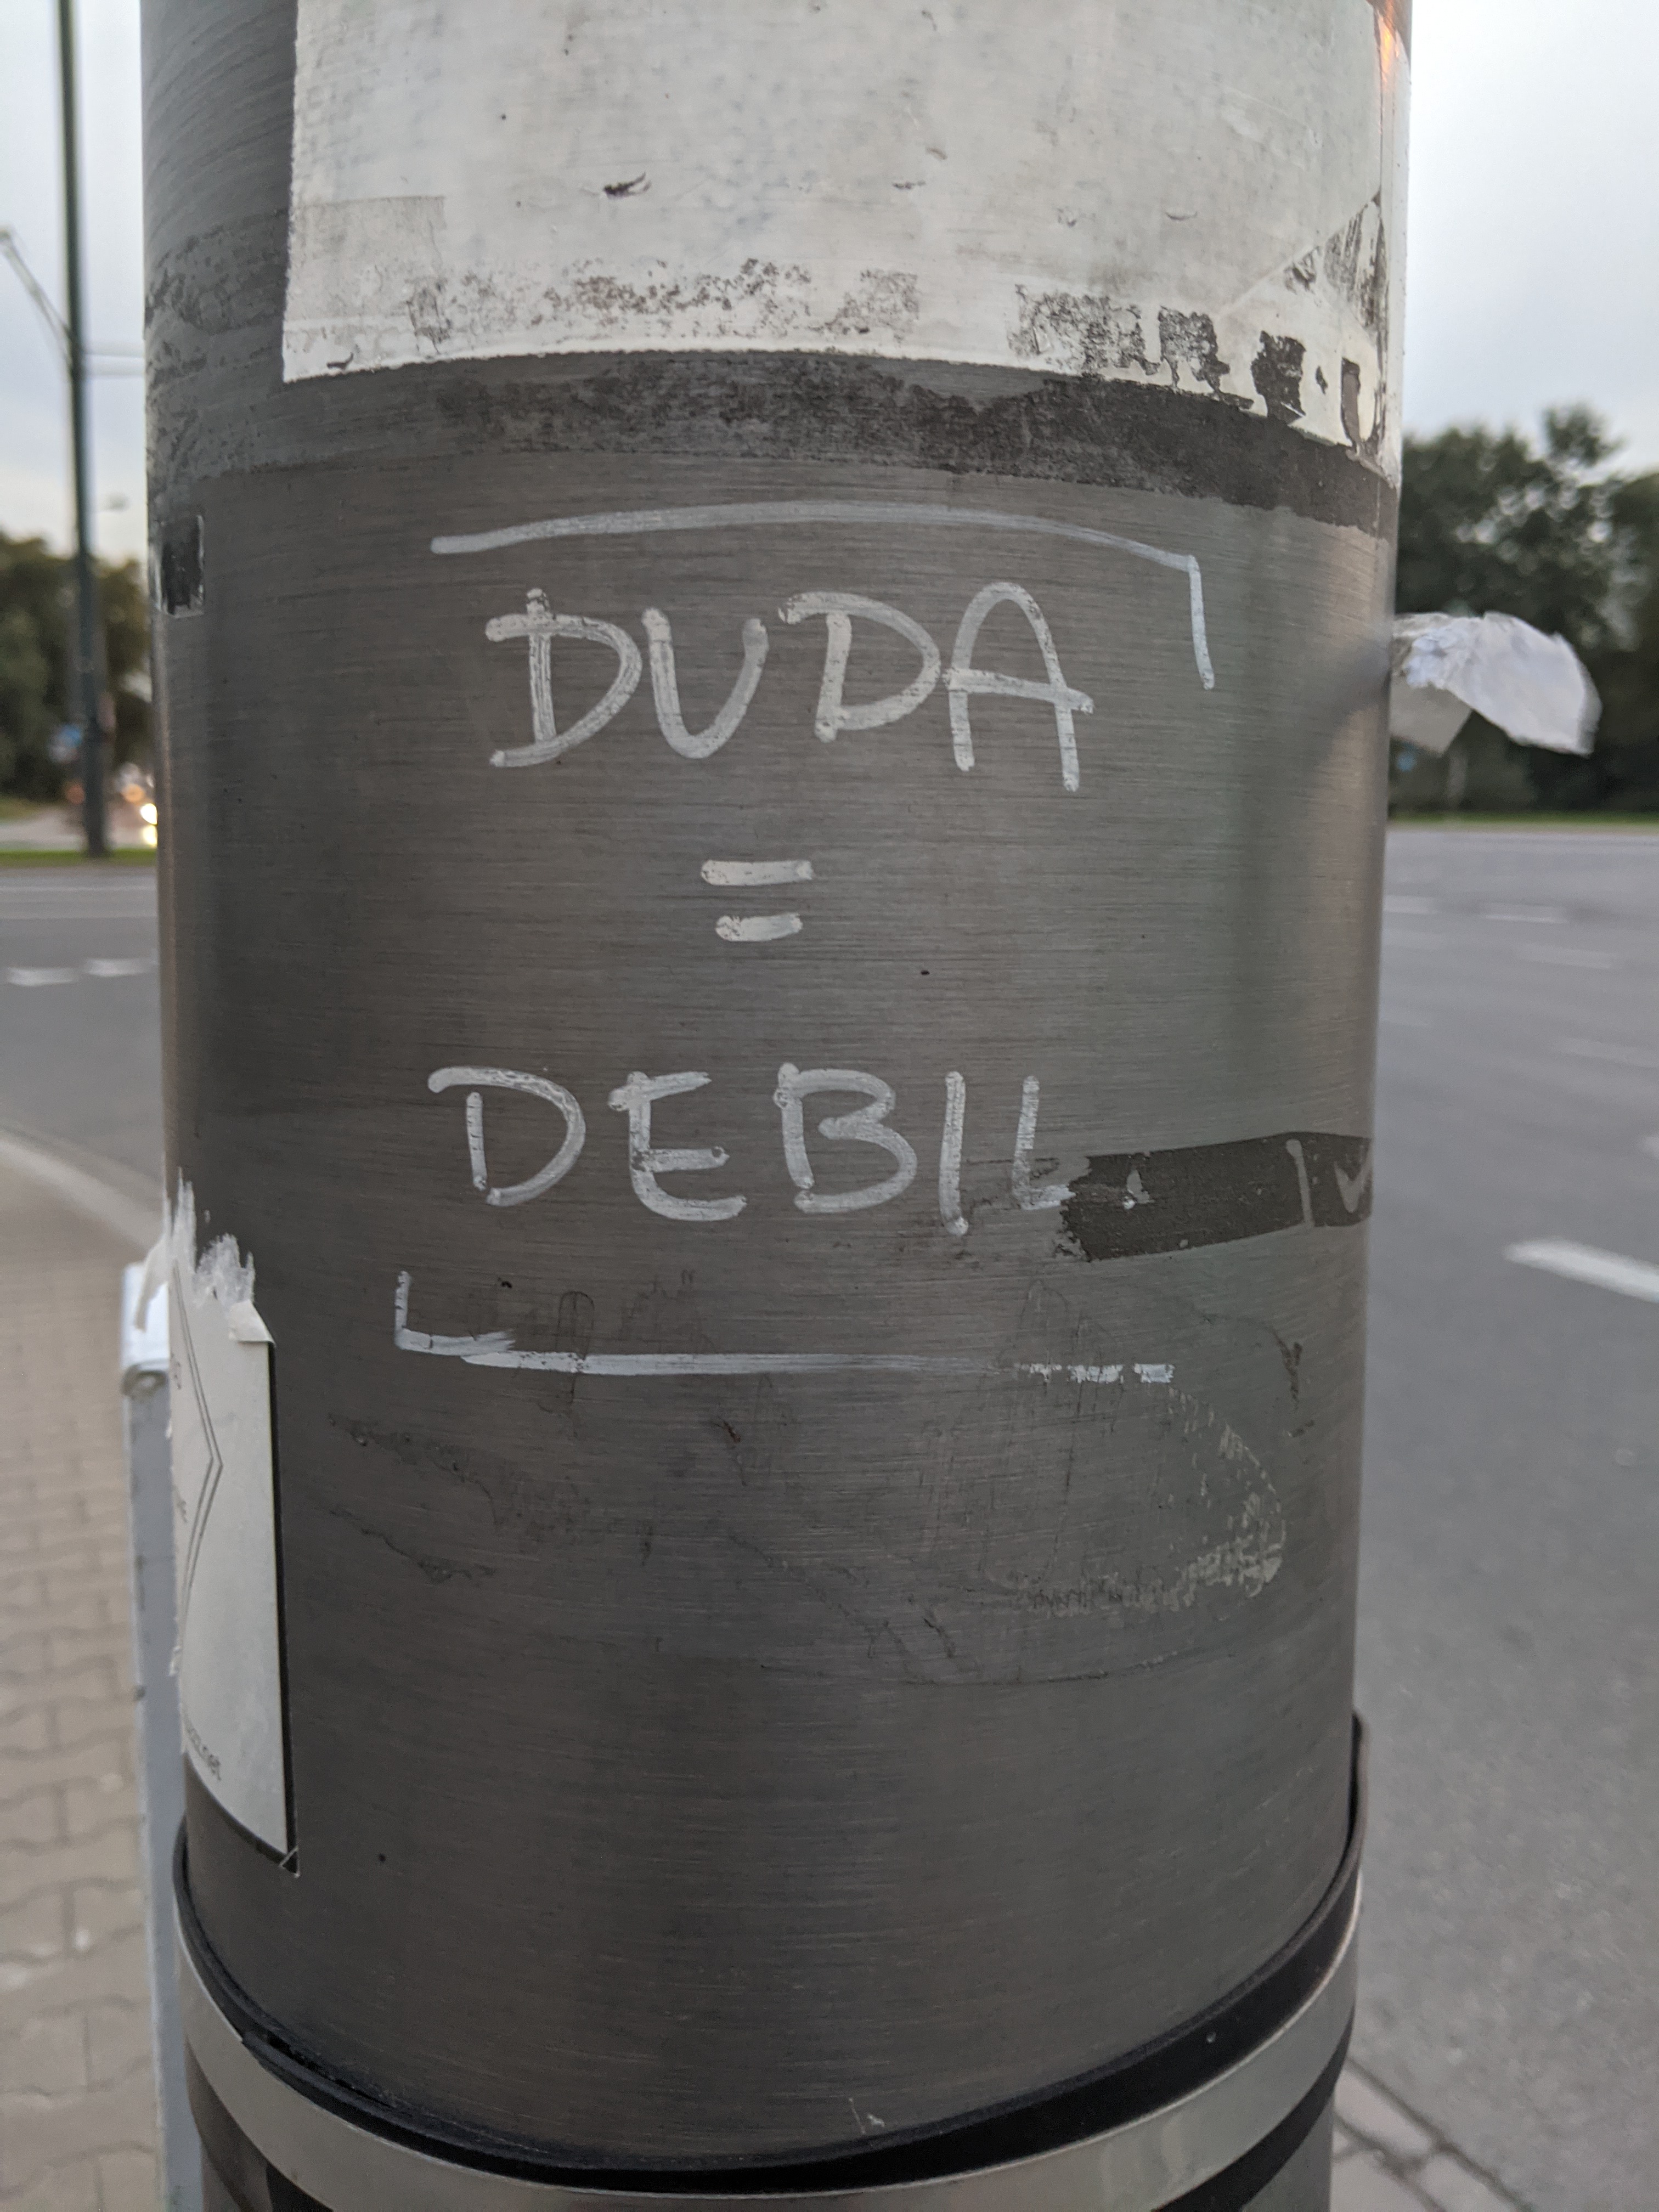 DUDA
=
DEBIL